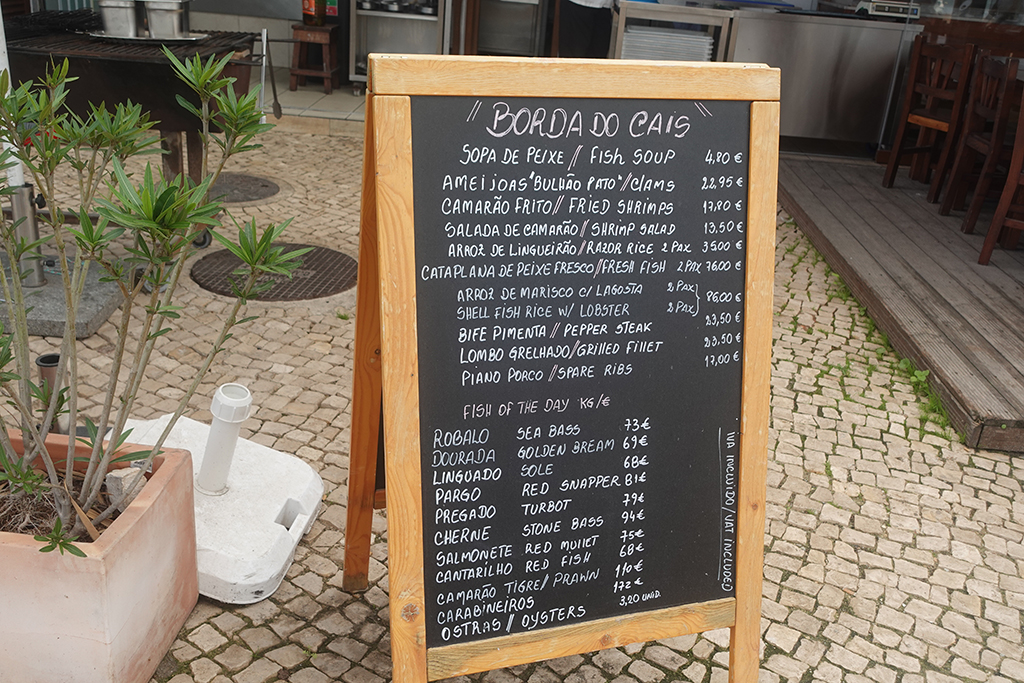 "BORDA DO CAIS"
SOPA DE PEIXE // FISH SOUP 4,80 €
AMEIJOAS "BULHÃO PATO"/CLAMS 22,95 €
CAMARÃO FRITO // FRIED SHRIMPS 17,90 €
SALADA DE CAMARÃO // SHRIMP SALAD 13,50 €
ARROZ DE LINGUEIRÃO/RAZOR RICE 2 PAX 35,00 €
CATAPLANA DE PEIXE FRESCO//FRESH FISH 2 PAX 76,00 €
ARROZ DE MARISCO C/ LAGOSTA 2 PAX
SHELL FISH RICE W/ LOBSTER 2 PAX } 86,00 €
BIFE PIMENTA // PEPPER STEAK 23,50 €
LOMBO GRELHADO/GRILLED FILLET 23,50 €
PIANO PORCO // SPARE RIBS 17,00 €
FISH OF THE DAY KG/€
ROBALO SEA BASS 73€
DOURADA GOLDEN BREAM 69€
LINGUADO SOLE 68€
PARGO RED SNAPPER 81€
PREGADO TURBOT 79€
CHERNE STONE BASS 94€
SALMONETE RED MULLET 75€
CANTARILHO RED FISH 68€
CAMARÃO TIGRE// PRAWN 110€
CARABINEIROS 172€
OSTRAS // OYSTERS 3,20 UNID.
IVA INCLUIDO/VAT INCLUDED